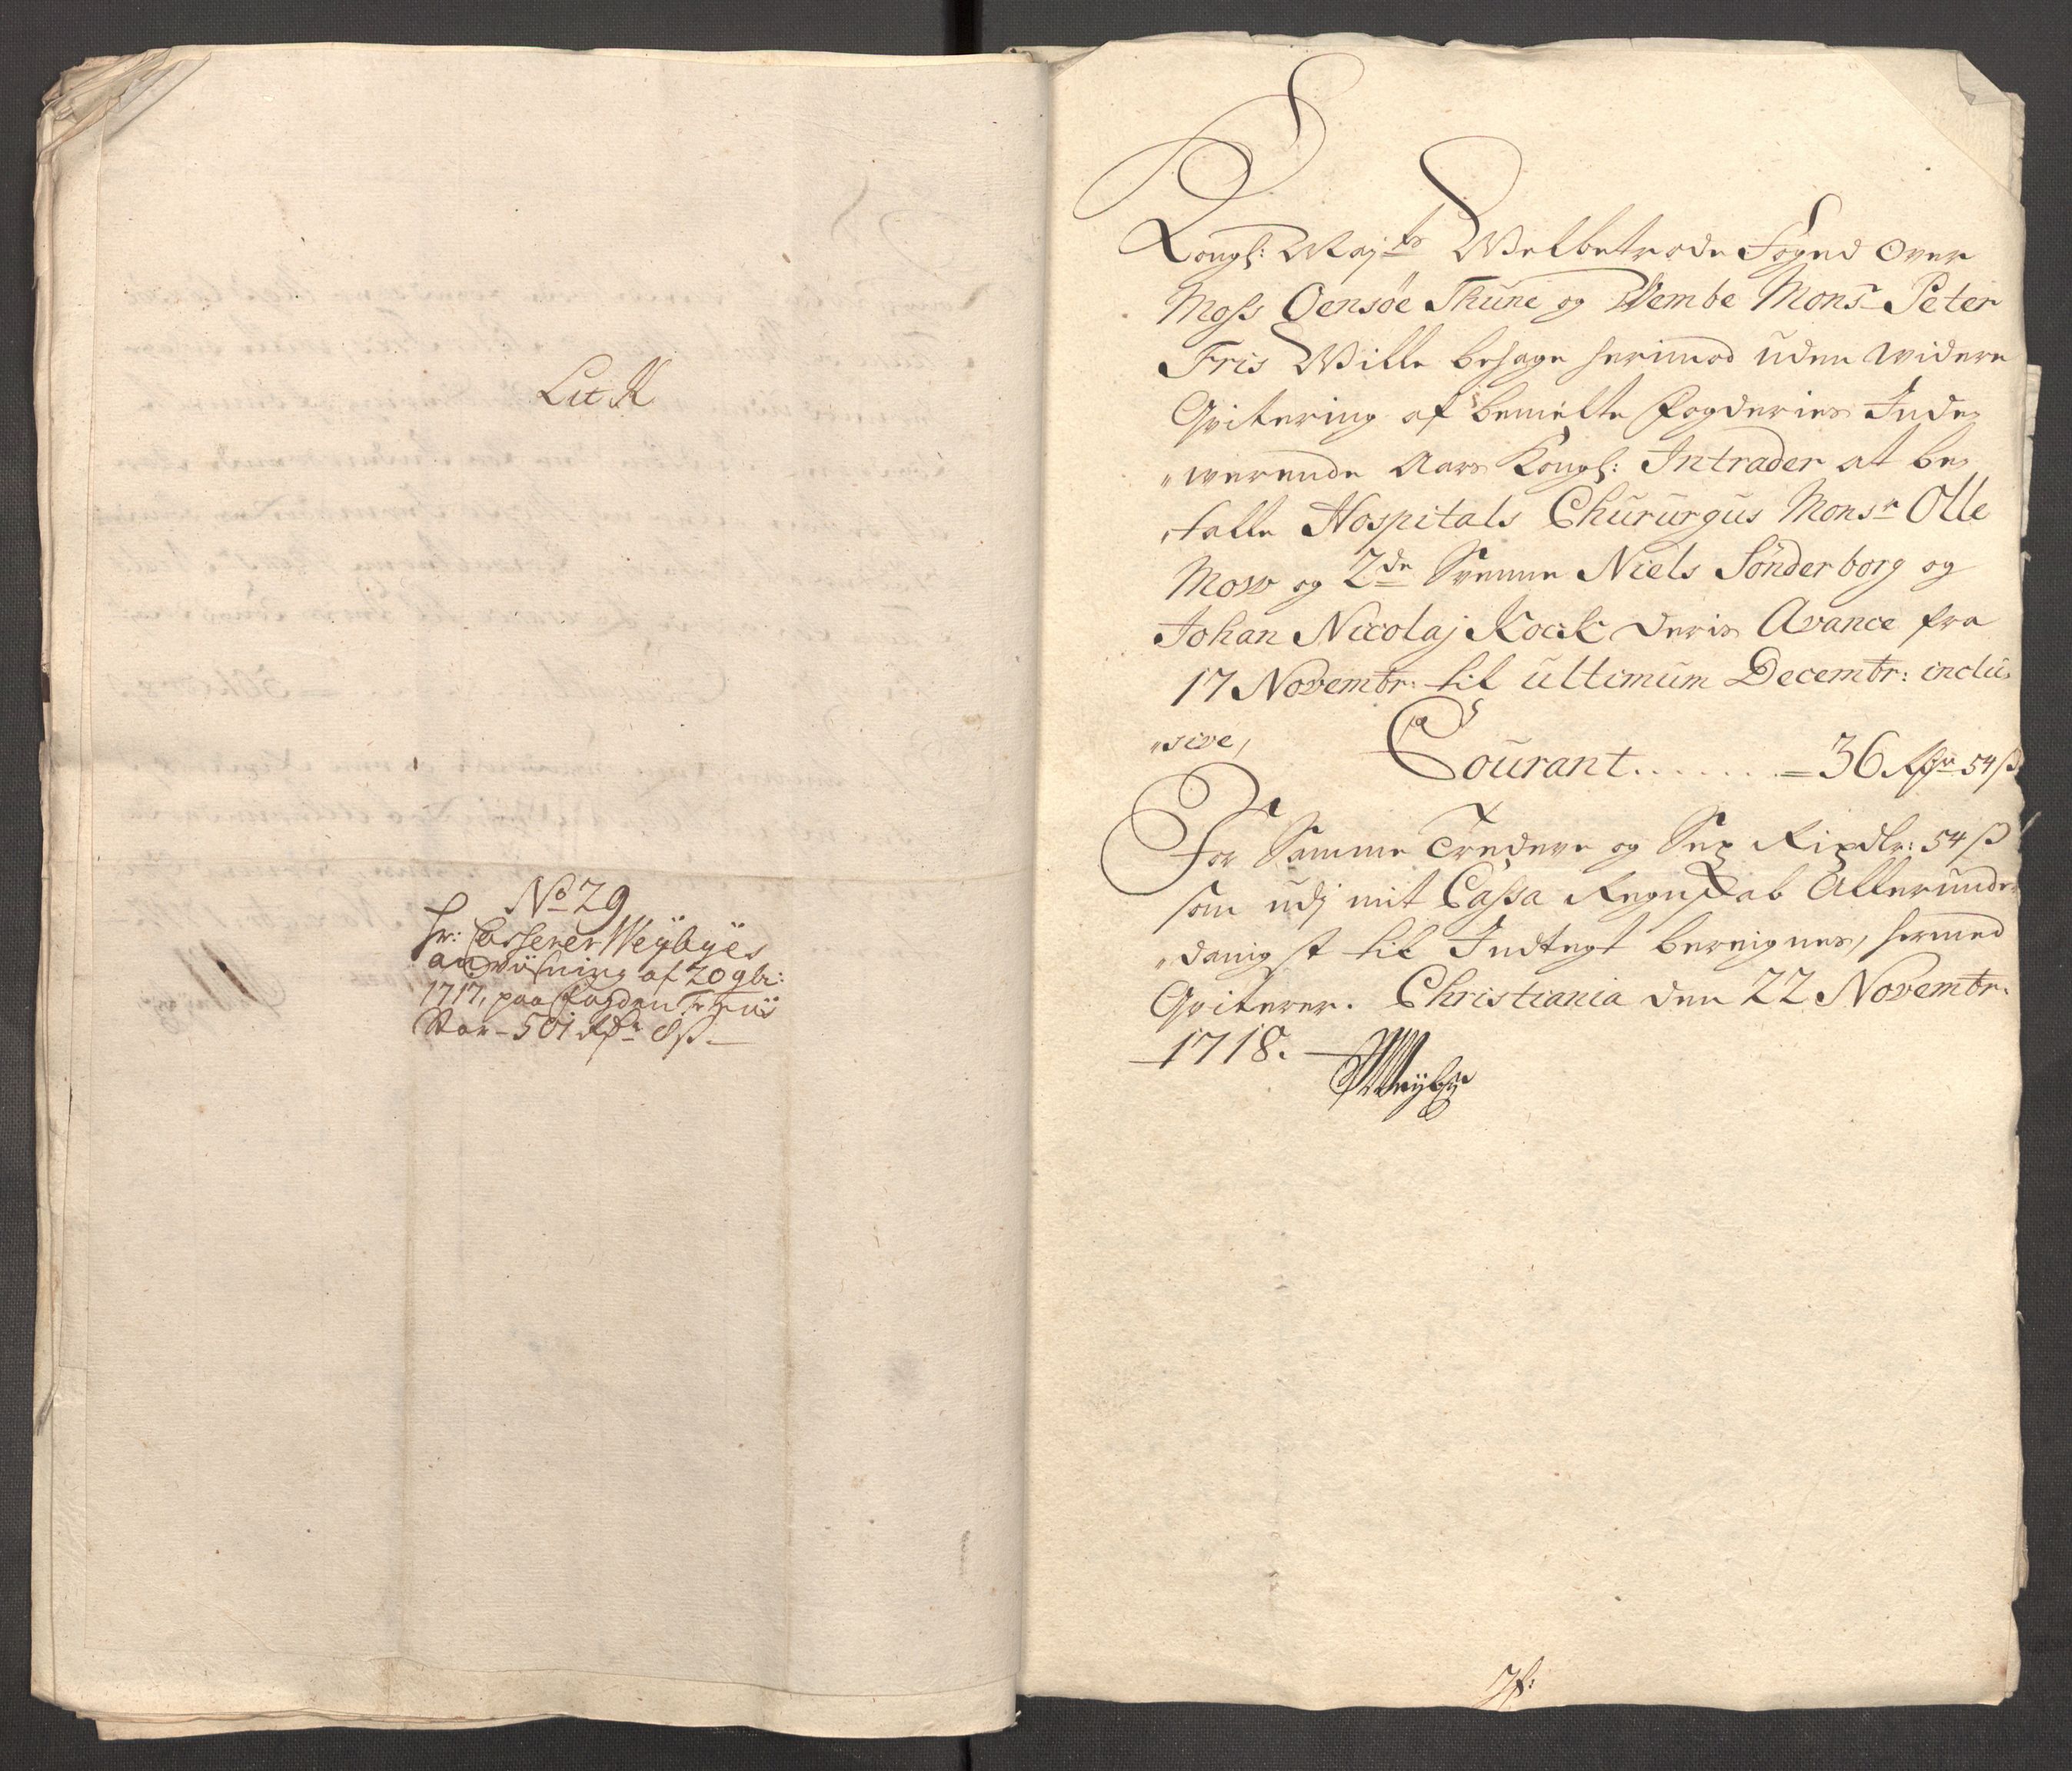 Lit K
No 29
Hr: Casserer Weybyes
anviisning af 20 9br:
1717, paa Fogden Friis
Stor – 501 Rdr 8 ß –
Kongl: Majts Welbetrode Foged over
Moss Oensøe Thune og Wembe Monsr Peter
Fris Wille behage herimod uden widere
Qvitering af bemelte Fogderies Inde,,
,,werende Aars Kongl: Intrader at be,,
,,talle Hospitals Chururgus Monsr Olle
Mow og 2de Svenne Niels Sønderborg og
Johan Nicolaj Kock deris Avance fra
17 Novembr: til ultimum Decembr: inclu,,
,,sive,
Courant . . . . . . . = 36 Rdr 54 ß
For Samme Tredeve og Sex Rixdlr: 54 ß
som udj mit Cassa Regnskab Allerunder,,
,,danigst til Indtegt bereignes, hermed
Qviterer. Christiania den 22 Novembr:
1718. –
Weybye